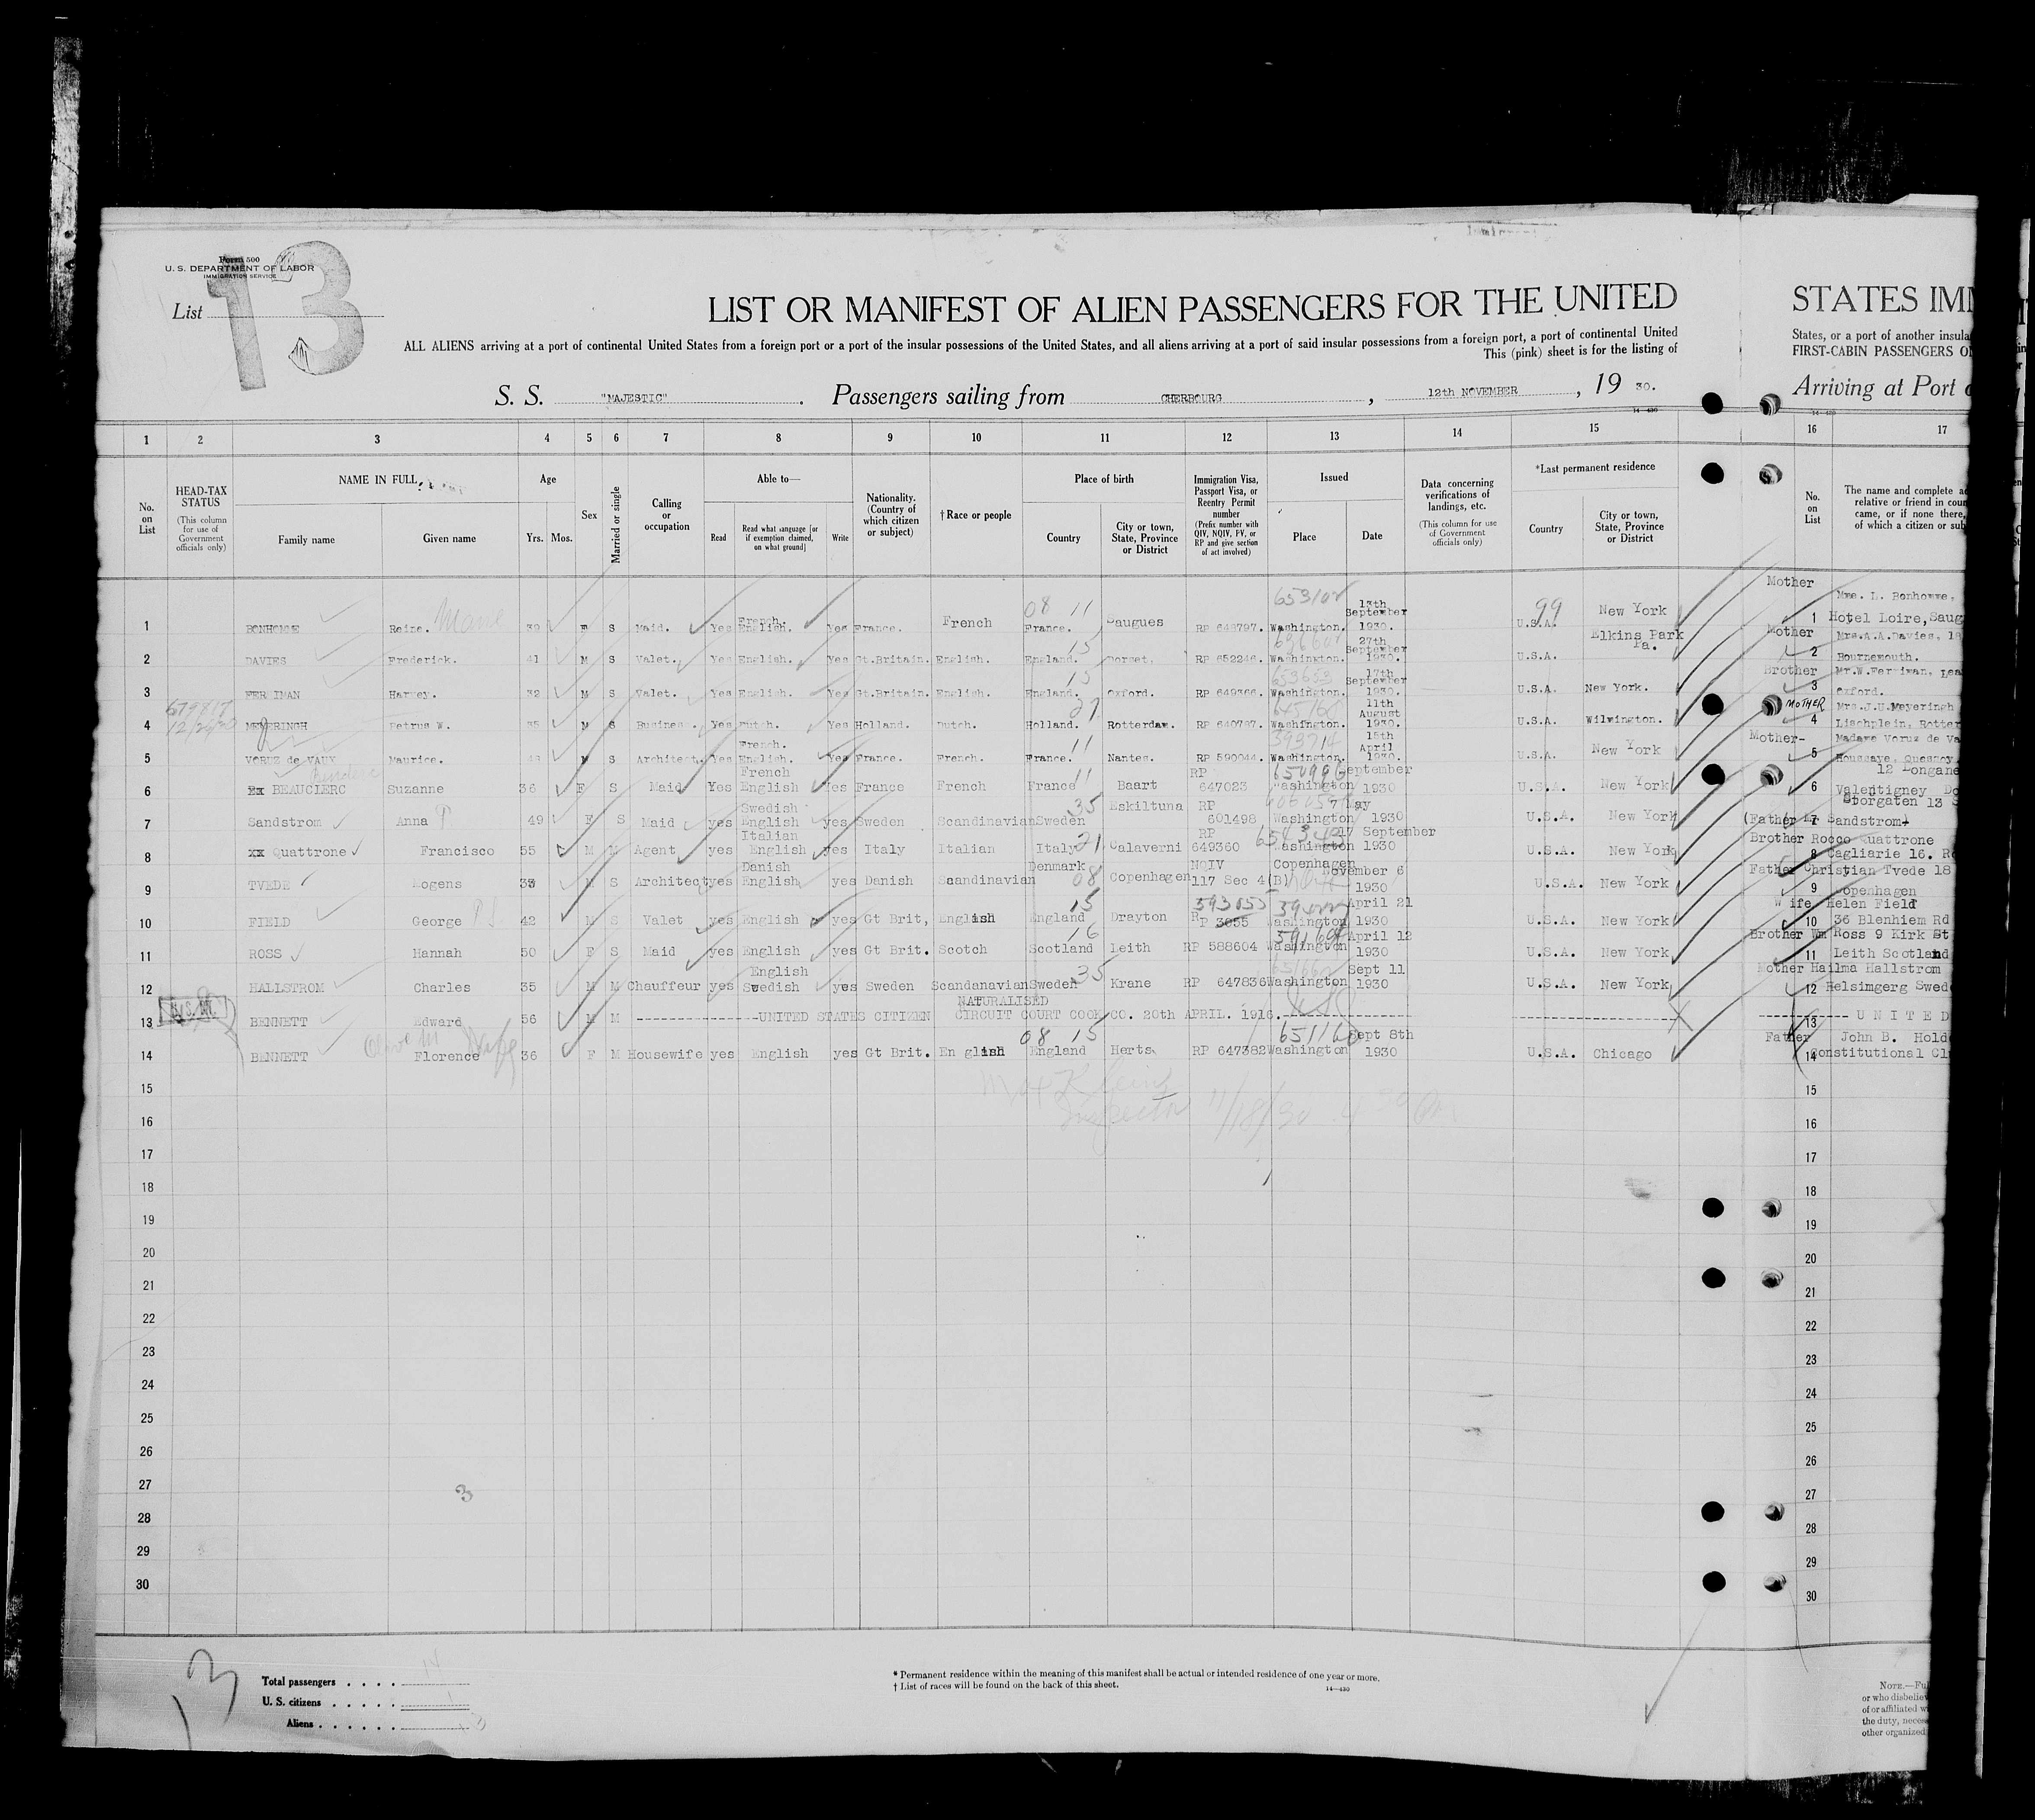 Form 500
U. S. DEPARTMENT OF LABOR
IMMIGRATION SERVICE
List 13
LIST OR MANIFEST OF ALIEN PASSENGERS FOR THE UNITED
STATES IM
ALL ALIENS arriving at a port of continental United States from a foreign port or a port of the insular possessions of the United States, and all aliens arriving at a port of said insular possessions from a foreign port, a port of continental United
States, or a port of another insula
This (pink) sheet is for the listing of
FIRST-CABIN PASSENGERS O
S. S. "MAJESTIC" . Passengers sailing from CHERBOURG , 12th NOVEMBER , 19 30.
Arriving at Port
14—430
1 2 3 4 5 6 7 8 9 10 11 12 13 14 15 16 17
No. on List
HEAD-TAX STATUS (This column for use of Government officials only)
NAME IN FULL
Family name Given name
Age Yrs. Mos.
Sex
Married or single
Calling or occupation
Able to—
Read Read what language [or if exemption claimed, on what ground] Write
Nationality. (Country of which citizen or subject)
† Race or people
Place of birth
Country City or town, State, Province or District
Immigration Visa, Passport Visa, or Reentry Permit number (Prefix number with QIV, NQIV, PV, or RP and give section of act involved)
Issued
Place Date
Data concerning verifications of landings, etc. (This column for use of Government officials only)
*Last permanent residence
Country City or town, State, Province or District
No. on List
The name and complete ad
relative or friend in coun
came, or if none there,
of which a citizen or sub
1 BONHOMME Reine. 39 F S Maid. Yes French. English. Yes France. French 08 11 France. Saugues RP 648797. Washington. 13th September 1930. 99 U.S.A. New York Mother 1 Mme. L. Bonhomme, Hotel Loire, Saug
2 DAVIES Frederick. 41 M S Valet. Yes English. Yes Gt.Britain. English. 15 England. Dorset. RP 652246. Washington. 27th September 1930. U.S.A. Elkins Park Pa. Mother 2 Mrs.A.A.Davies, 18 Bournemouth.
3 FERRIMAN Harvey. 32 M S Valet. Yes English. Yes Gt.Britain. English. 15 England. Oxford. RP 649366. 653653 Washington. 17th September 1930. U.S.A. New York. Brother 3 Mr.W.Ferriman, Lea Oxford.
4 MEYERINGH Petrus W. 35 M S Busines. Yes Dutch. Yes Holland. Dutch. 27 Holland. Rotterdam. RP 640797. Washington. 11th August 1930. U.S.A. Wilmington. MOTHER 4 Mrs.J.U.Meyeringh Lischplein, Rotter
5 VORUZ de VAUX Maurice. Architect. Yes French. English. Yes France. French. 11 France. Nantes. RP 590044. 393714 Washington. 15th April 1930. U.S.A. New York Mother- 5 Madame Voruz de Va Houssaye, Quesnoy
6 BEAUCLERC Suzanne 36 F S Maid Yes French English Yes France French France 11 Baart RP 647023 Washington September 1930 U.S.A. New York 6 12 Longane Valentigney Do
7 Sandstrom Anna P 49 F S Maid yes Swedish English yes Sweden Scandinavian 35 Sweden Eskiltuna RP 601498 Washington 7 May 1930 U.S.A. New York (Father Mr Sandstrom) 7 Storgaten 13 S
8 xx Quattrone Francisco 55 M M Agent yes Italian English yes Italy Italian Italy 21 Calaverni RP 649360 Washington 17 September 1930 U.S.A. New York Brother Rocco Quattrone 8 Cagliarie 16. R
9 TVEDE Mogens 35 M S Architect yes Danish English yes Danish Scandinavian Denmark 08 Copenhagen NQIV 117 Sec 4(B) Copenhagen November 6 1930 U.S.A. New York Father Christian Tvede 18 9 Copenhagen
10 FIELD George 42 M S Valet yes English yes Gt Brit, English 15 England Drayton RP 3055 Washington April 21 1930 U.S.A. New York Wife Helen Field 10 36 Blenhiem Rd
11 ROSS Hannah 50 F S Maid yes English yes Gt Brit. Scotch 16 Scotland Leith RP 588604 Washington April 12 1930 U.S.A. New York Brother Wm Ross 9 Kirk St 11 Leith Scotland
12 HALLSTROM Charles 35 M M Chauffeur yes English Swedish yes Sweden Scandanavian 35 Sweden Krane RP 647836 Washington Sept 11 1930 U.S.A. New York Mother Hailma Hallstrom 12 Helsimgerg Swed
13 BENNETT Edward 56 M M ----UNITED STATES CITIZEN NATURALISED CIRCUIT COURT COOK CO. 20th APRIL. 1916.---- 13 ---- UNITED
14 BENNETT Florence 36 F M Housewife yes English yes Gt Brit. English 08 15 England Herts RP 647382 651160 Washington Sept 8th 1930 U.S.A. Chicago Father 14 John B. Hold Constitutional Cl
11/18/30
15 15
16 16
17 17
18 18
19 19
20 20
21 21
22 22
23 23
24 24
25 25
26 26
27 27
28 28
29 29
30 30
3
Total passengers . . . . 14
U. S. citizens . . . . . 1
Aliens . . . . . . 13
* Permanent residence within the meaning of this manifest shall be actual or intended residence of one year or more.
† List of races will be found on the back of this sheet.
14—430
NOTE.—Ful
or who disbeliev
of or affiliated w
the duty, neces
other organized